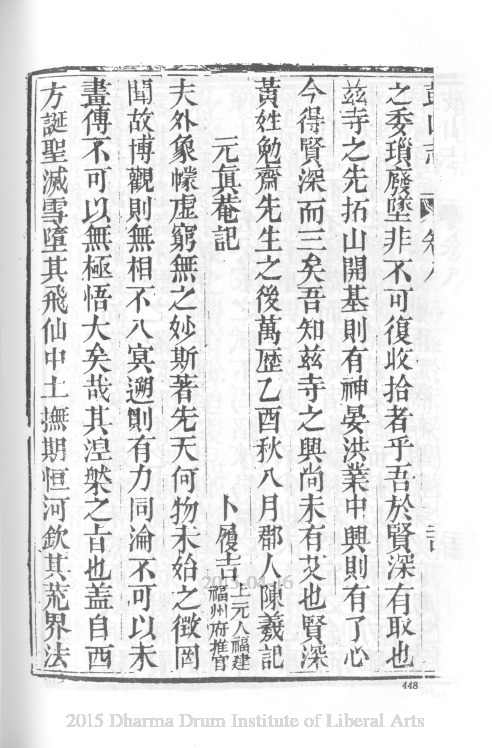 鼓山志 卷八
之委瑣廢墜非不可復收拾者乎吾於賢深有取也
茲寺之先拓山開基則有神晏洪業中興則有了心
今得賢深而三矣吾知茲寺之興尚未有艾也賢深
黃姓勉齋先生之後萬歷乙酉秋八月郡人陳羲記
元眞菴記
卜履吉 上元人福建
福州府推官
夫外象幪虛窮無之妙斯著先天何物未始之徵罔
聞故博觀則無相不入冥遡則有力同淪不可以未
畫傳不可以無極悟大矣哉其涅槃之旨也蓋自西
方誕聖滅雪墮其飛仙中土撫期恒河欽其荒界法
448
2015 Dharma Drum Institute of Liberal Arts